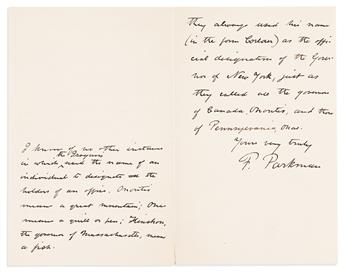 I know of no other instance
in which the Iroquois used the name of an
individual to designate all the
holders of an office. Onontio
means a great mountain; Onas
means a quill or pen; Kinshon,
the governor of Massachusetts, means
a fish.
they always used his name
(in the form Corlaer) as the offi
cial designation of the Gover
nor of New York, just as
they called all the governors
of Canada, Onontio, and those
of Pennsylvania, Onas.
Yours very truly
F. Parkman